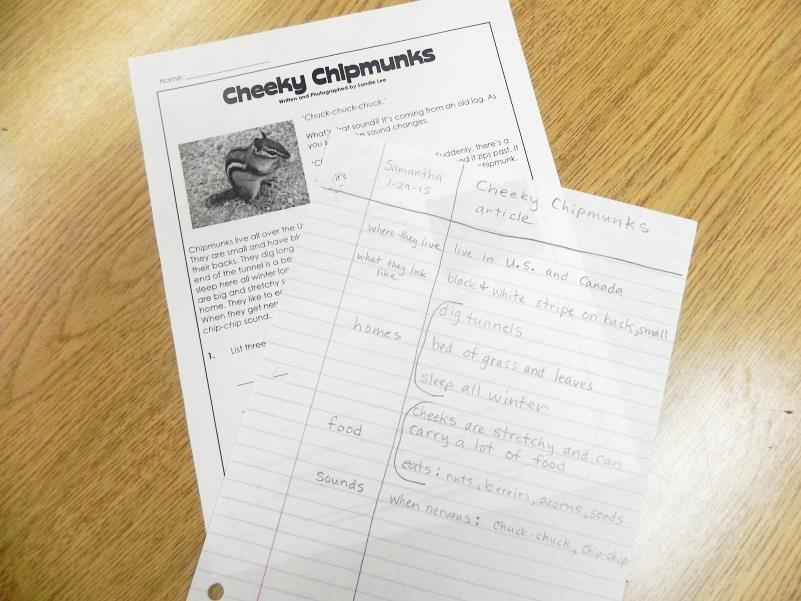 Name:
Cheeky Chipmunks
Written and Photographed by Sandie Lee
'Chuck-chuck-chuck.'
What's that sound? It's coming from an old log. As
you s the sound changes.
Suddenly, there's a
it zips past. It
chipmunk.
it's
Chipmunks live all over the U
They are small and have bl
their backs. They dig long
end of the tunnel is a be
sleep here all winter lon
are big and stretchy s
home. They like to e
When they get ner
chip-chip sound.
1. List three
Samantha
1-29-15
Cheeky Chipmunks
article
where they live
live in U.S. and Canada
what they look
like
black & white stripe on back, small
homes
dig tunnels
bed of grass and leaves
sleep all winter
food
cheeks are stretchy and can
carry a lot of food
eats: nuts, berries, acorns, seeds
Sounds
when nervous: chuck-chuck, chip-chip